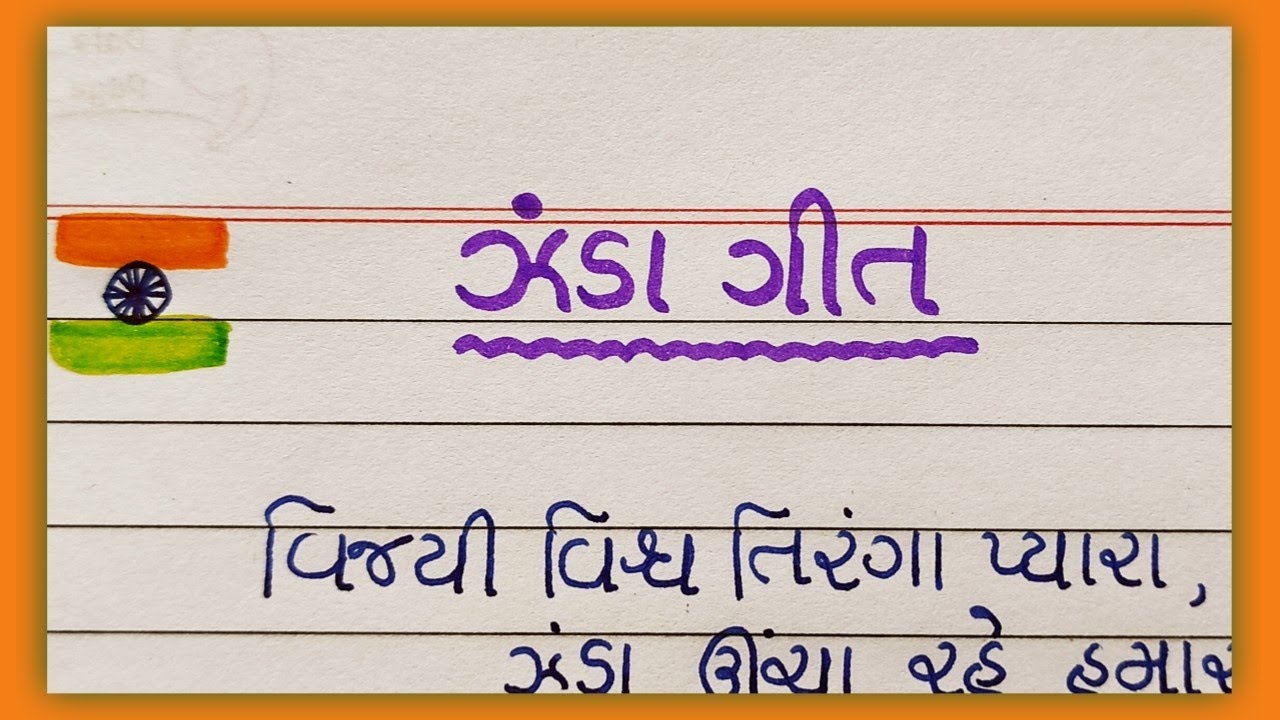 ઝંડા ગીત
વિજયી વિશ્વ તિરંગા પ્યારા,
ઝંડા ઊંચા રહે